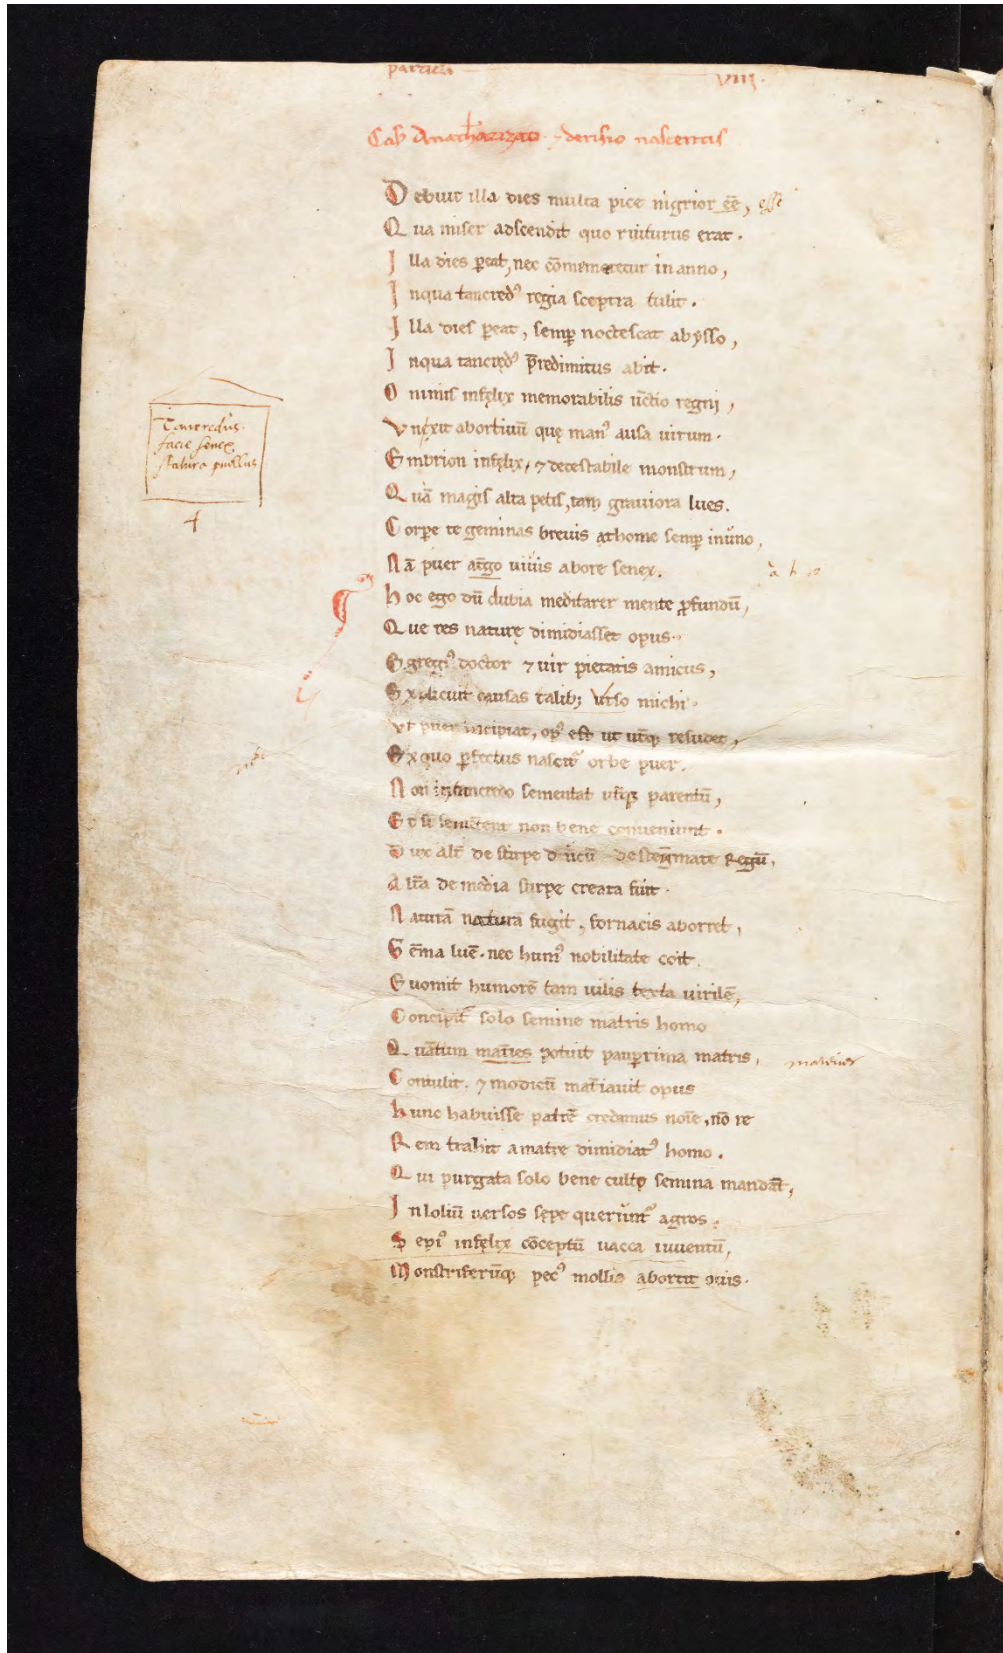 particula VIII.
Casus Anatharizatio ⁊ derisio nascentis
Debuit illa dies multa pice nigrior eē, esse
Qua miser adscendit quo ruiturus erat.
Illa dies ꝑeat, nec cōmemoretur in anno,
Inqua tancredꝰ regia sceptra tulit.
Illa dies ꝑeat, semꝑ noctescat abysso,
Inqua tancredꝰ p̄redimitus abit.
O nimis infęlix memorabilis ūctio regni,
Vnęxit abortiuū quę manꝰ ausa uirum.
Embrion infęlix, ⁊ detestabile monstrum,
Quā magis alta petis, tam grauiora lues.
Corꝑe te geminas breuis athome semꝑ inuno,
Nā puer at̄go uiuis abore senex.
Hoc ego dū dubia meditarer mente ꝓfundū,
Que res naturę dimidiasset opus.
Egregiꝰ doctor ⁊ uir pietatis amicus,
Explicuit causas talibꝫ urso michi.
Tancredus
facie senex
statura puellus
4
Vt puer incipiat, opꝰ est ut ut̄qꝫ resudet,
Exquo ꝑfectus nascitᷣ orbe puer.
Non intancredo sementat ut̄qꝫ parentū,
Et si sementent non bene conueniunt.
Dux alt̄ de stirpe ducū de stegmate Regū,
Alt̄a de media stirpe creata fuit.
Naturā natura fugit, fornacis aborret,
Gēma luē. nec humꝰ nobilitate coit.
Euomit humorē tam uilis texta uirilē,
Concipitᷣ solo semine matris homo
Quātum mat̄ies potuit pauꝑrima matris, materies
Contulit, ⁊ modicū mat̄iauit opus
Hunc habuisse patrē credamus noīe, nō re
Rem trahit amatre dimidiatꝰ homo.
Qui purgata solo bene culto semina mandāt,
Inloliū uersos sępe queruntᷣ agros.
Sepiꝰ infęlix cōceptū uacca iuuentū,
Monstriferūqꝫ pecꝰ mollis abortit ouis.